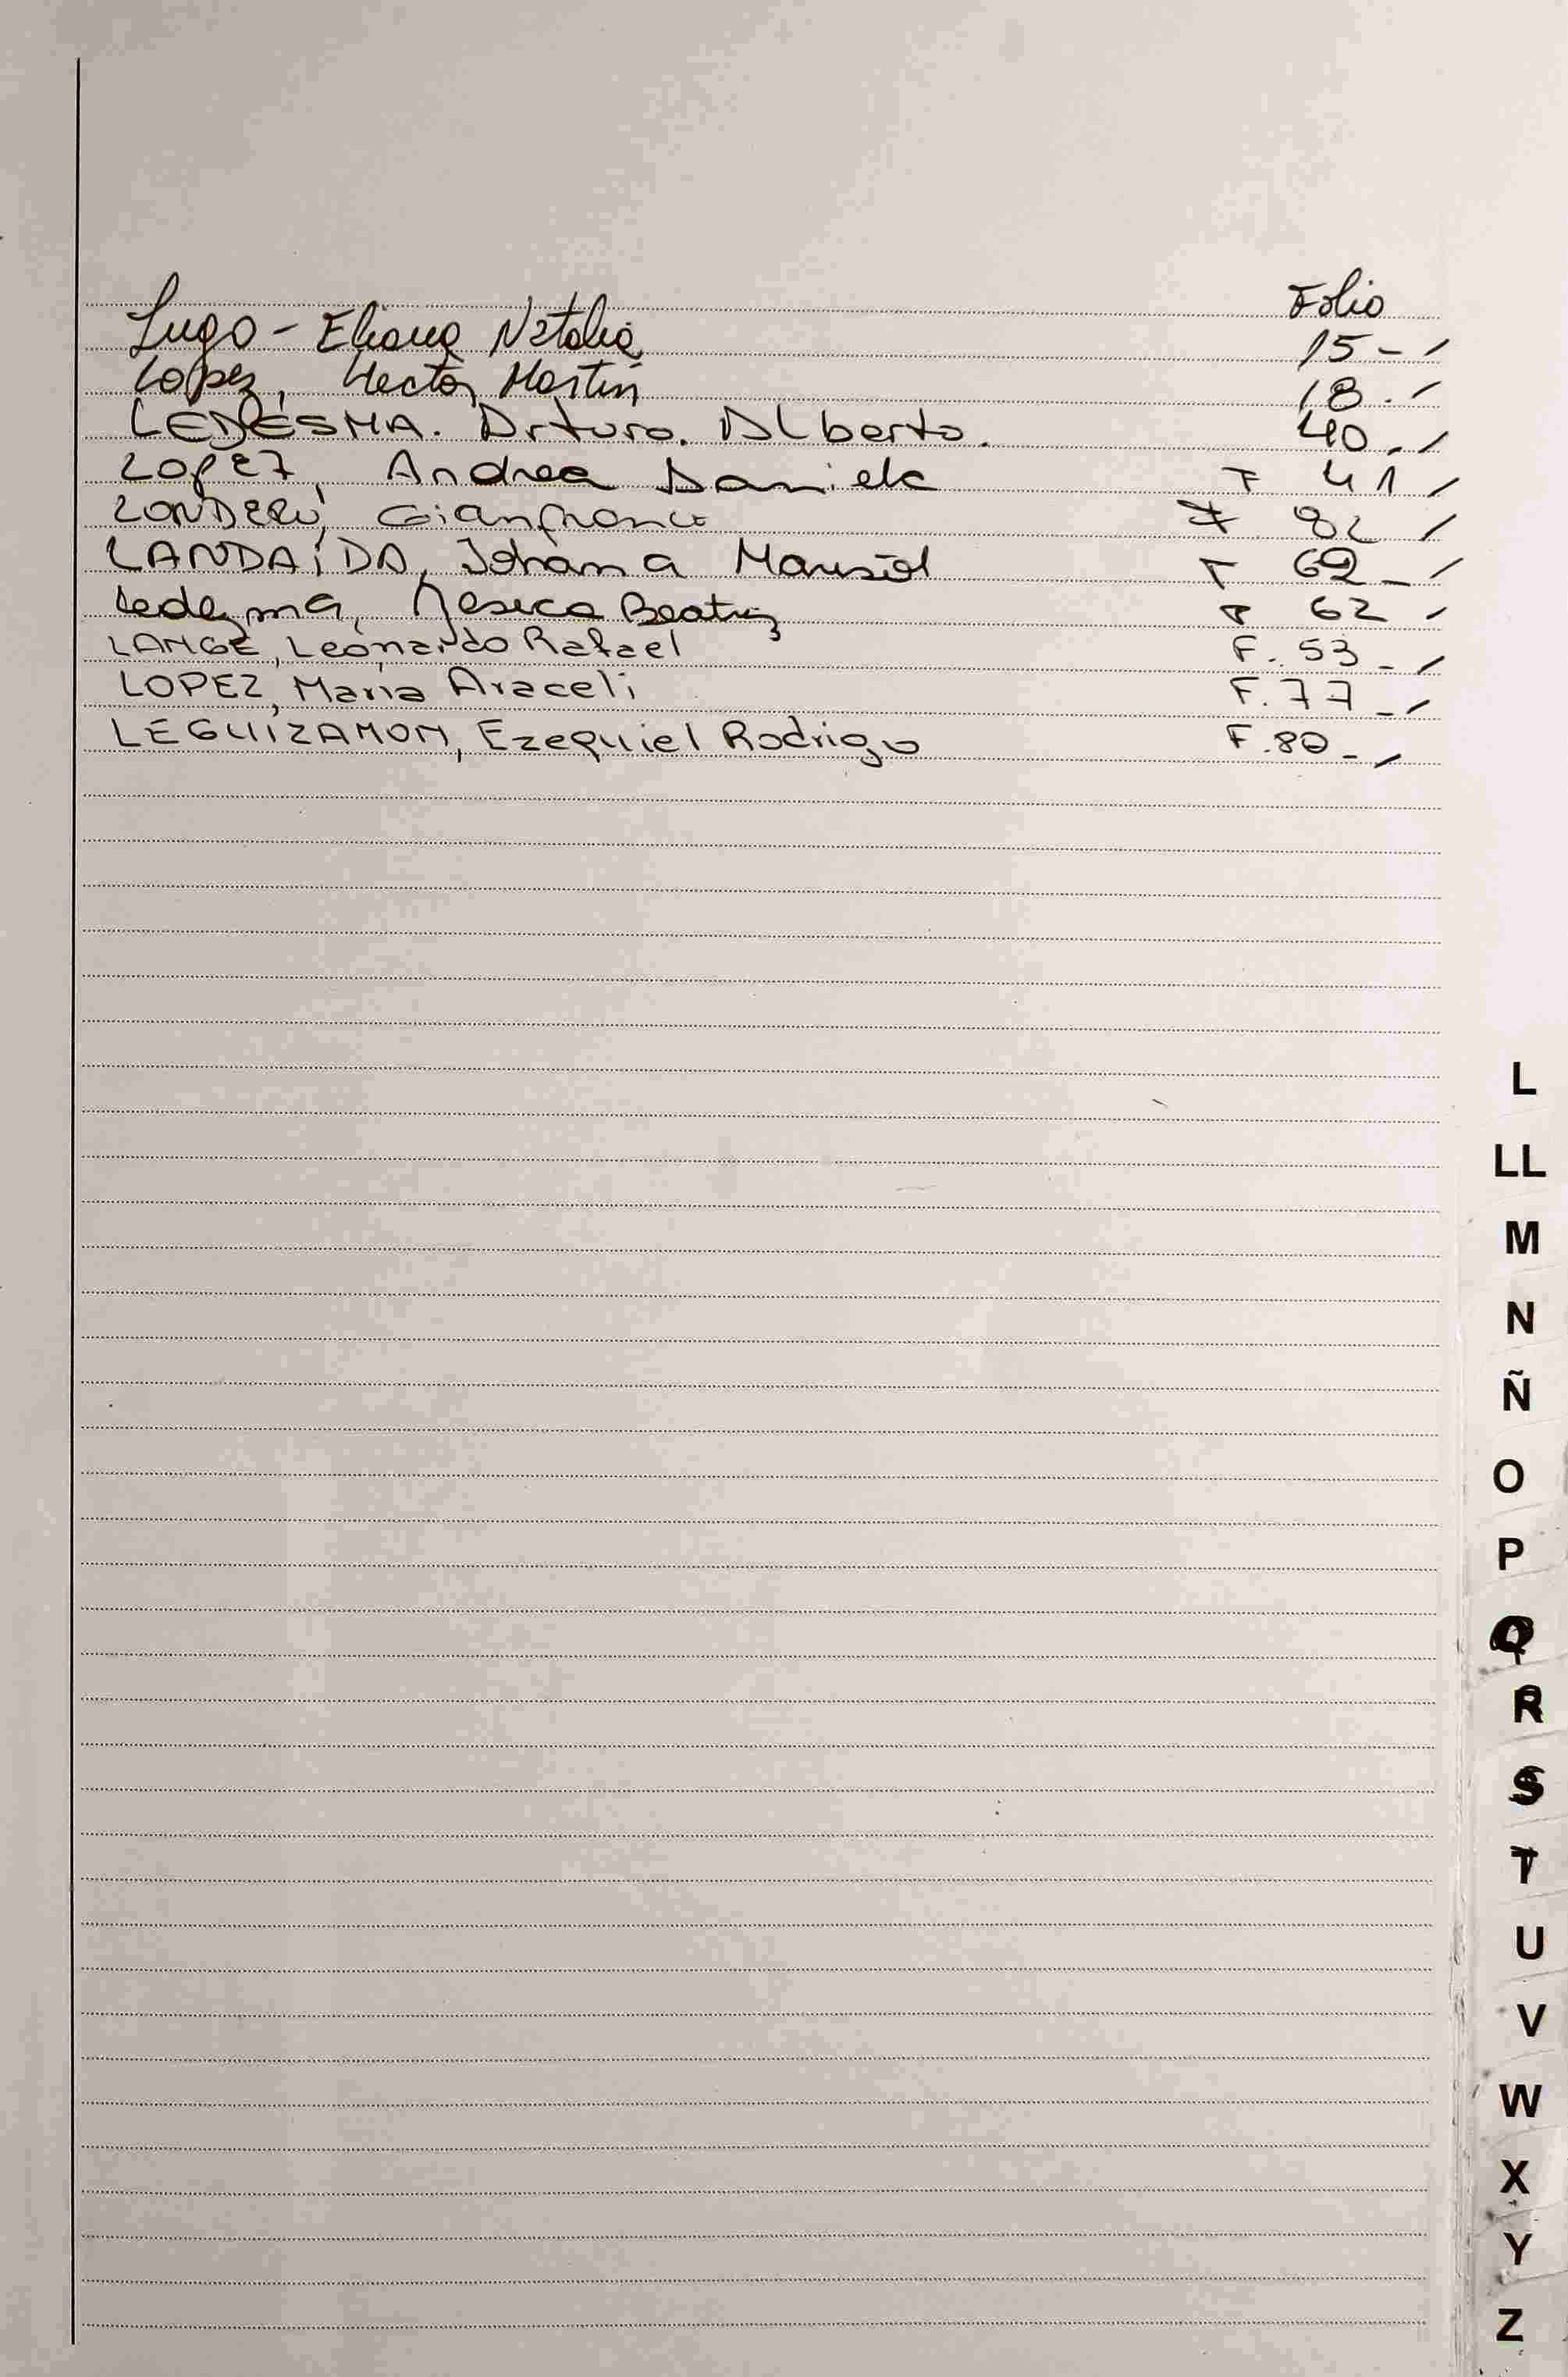 Folio
Lugo - Eliana Natalia 15 - /
Lopez, Hector Martin 18 . /
LEDESMA. Arturo. Alberto. 40 . /
LOPEZ, Andrea Daniela F 41 /
LONDERO, Gianfranco F 82 /
LANDAIDA, Johana Marisol F 69 - /
Ledezma, Jesica Beatriz F 62 /
LANGE, Leonardo Rafael F. 53 - /
LOPEZ, Maria Araceli F. 77 - /
LEGUIZAMON, Ezequiel Rodrigo F. 80 - /
L
LL
M
N
Ñ
O
P
Q
R
S
T
U
V
W
X
Y
Z